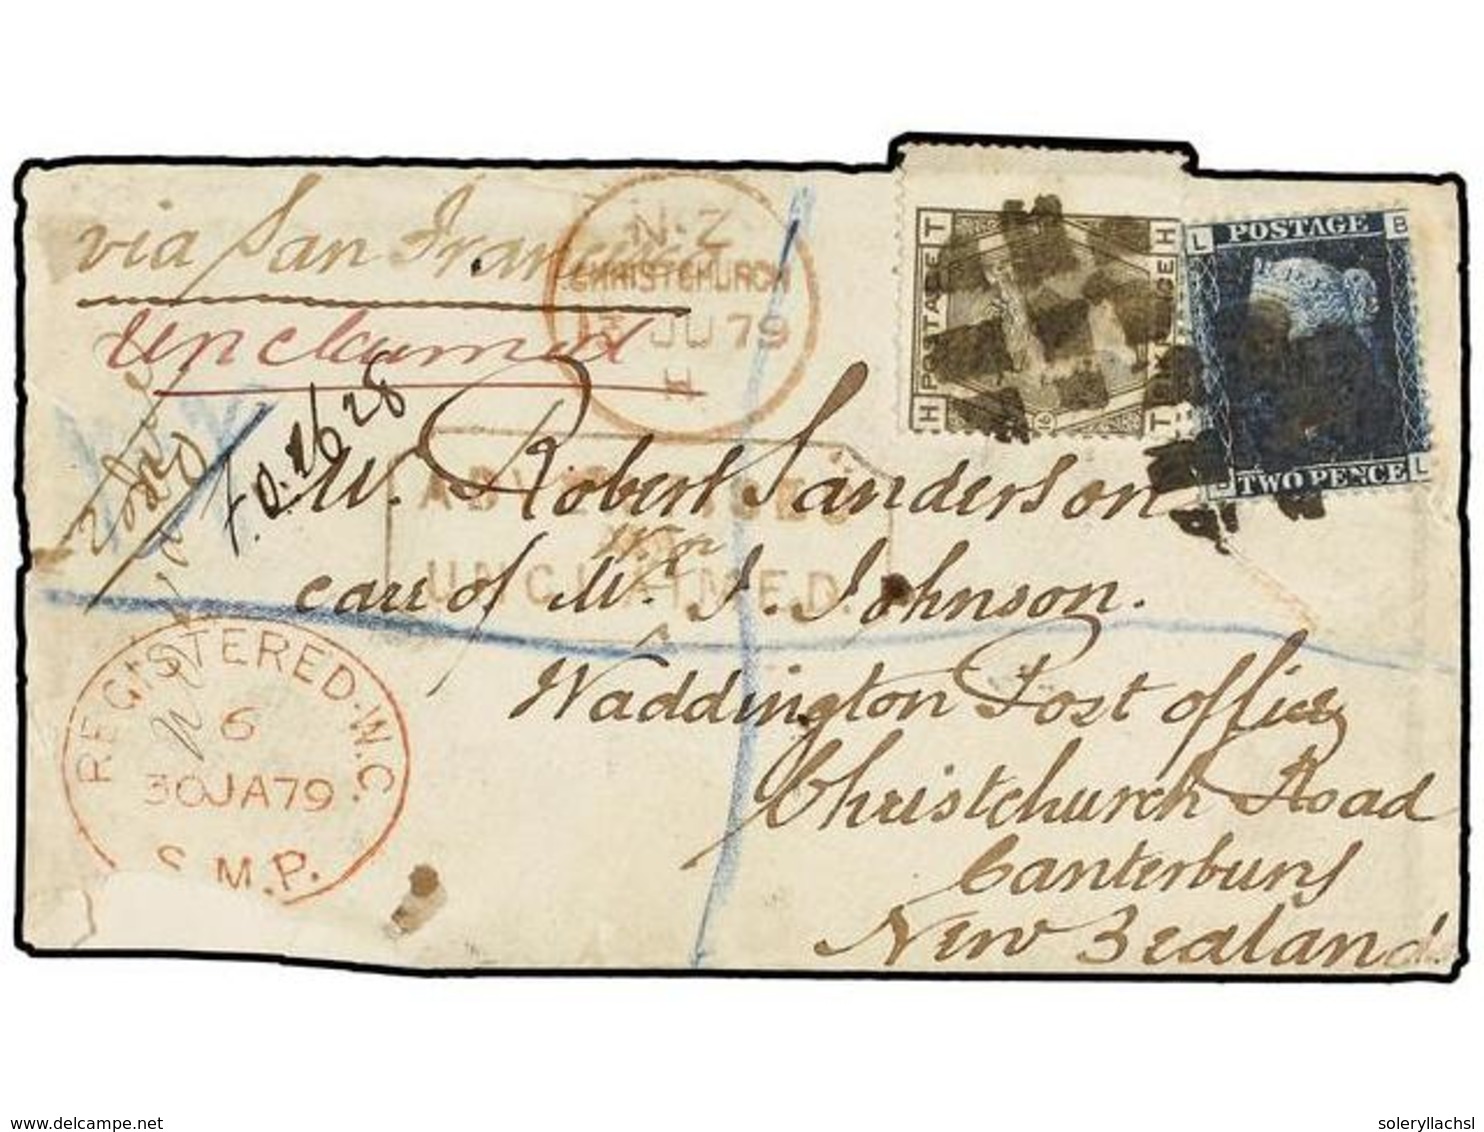 via San Francisco
Unclaimed
N.Z
CHRISTCHURCH
JU 79
H
T
H
POSTAGE
PENCE
H
T
16
L
POSTAGE
B
L
TWO PENCE
L
Mr. Robert Sanderson
care of Mr. J. Johnson.
ADVERTISED
UNCLAIMED.
Waddington Post office
Christchurch Road
Canterbury
New Zealand
REGISTERED.W.C.
6
30JA79
S.M.P.
delcampe.net
soleryllachsl